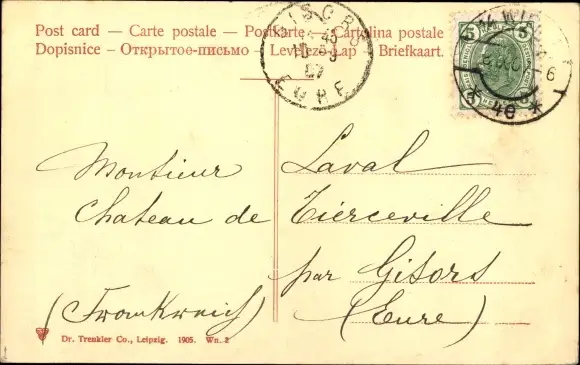 Post card — Carte postale — Postkarte — Cartolina postale
Dopisnice — Открытое-письмо — Levelező-Lap — Briefkaart.
GISORS
EURE
5 5
5
WIEN
6
4e *
Monsieur Laval
Chateau de Tierceville
par Gisors
(Frankreich) (Eure)
Dr. Trenkler Co., Leipzig. 1905. Wn. 2